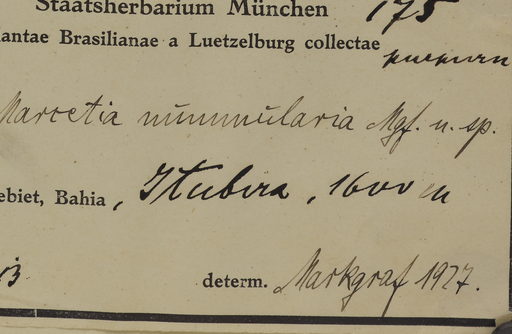 Staatsherbarium München 175
lantae Brasilianae a Luetzelburg collectae
Marcetia nummularia Mgf. n. sp.
ebiet, Bahia, Itubira, 1600 m
13
determ. Markgraf 1927.